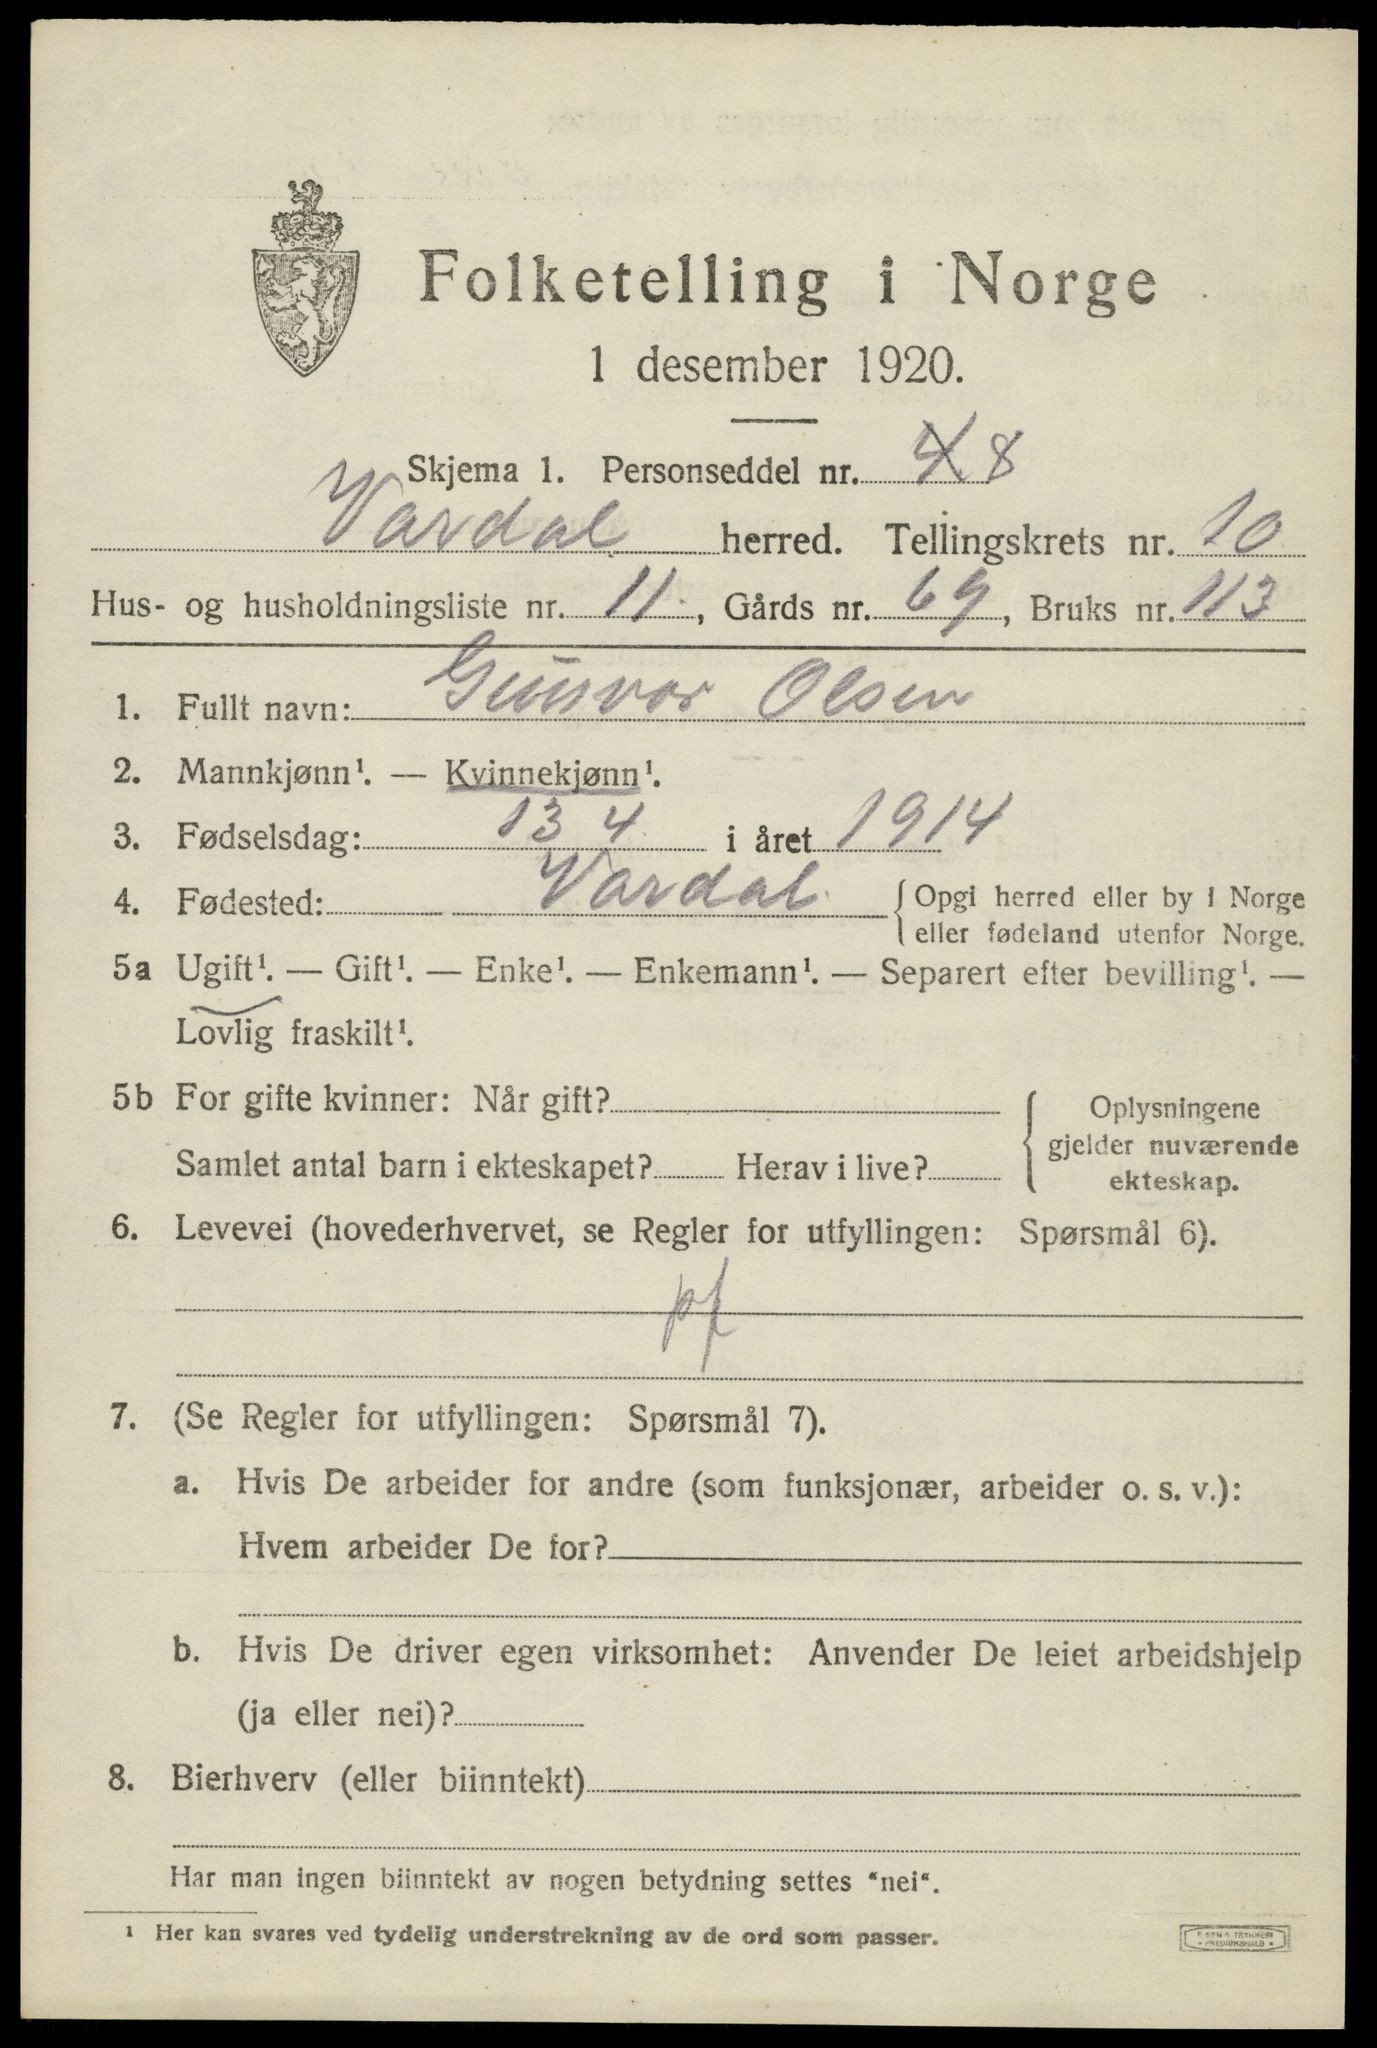 Folketelling i Norge
1 desember 1920.
Skjema 1. Personseddel nr. 4 8
Vardal herred. Tellingskrets nr. 10
Hus- og husholdningsliste nr. 11, Gårds nr. 69, Bruks nr. 113
1. Fullt navn: Gunvor Olsen
2. Mannkjønn¹. — Kvinnekjønn¹.
3. Fødselsdag: 13 4 i året 1914
4. Fødested: Vardal { Opgi herred eller by i Norge
eller fødeland utenfor Norge.
5a Ugift¹. — Gift¹. — Enke¹. — Enkemann¹. — Separert efter bevilling¹. —
Lovlig fraskilt¹.
5b For gifte kvinner: Når gift?
Samlet antal barn i ekteskapet? Herav i live?
{ Oplysningene
gjelder nuværende
ekteskap.
6. Levevei (hovederhvervet, se Regler for utfyllingen: Spørsmål 6).
pf
7. (Se Regler for utfyllingen: Spørsmål 7).
a. Hvis De arbeider for andre (som funksjonær, arbeider o. s. v.):
Hvem arbeider De for?
b. Hvis De driver egen virksomhet: Anvender De leiet arbeidshjelp
(ja eller nei)?
8. Bierhverv (eller biinntekt)
Har man ingen biinntekt av nogen betydning settes "nei".
¹ Her kan svares ved tydelig understrekning av de ord som passer.